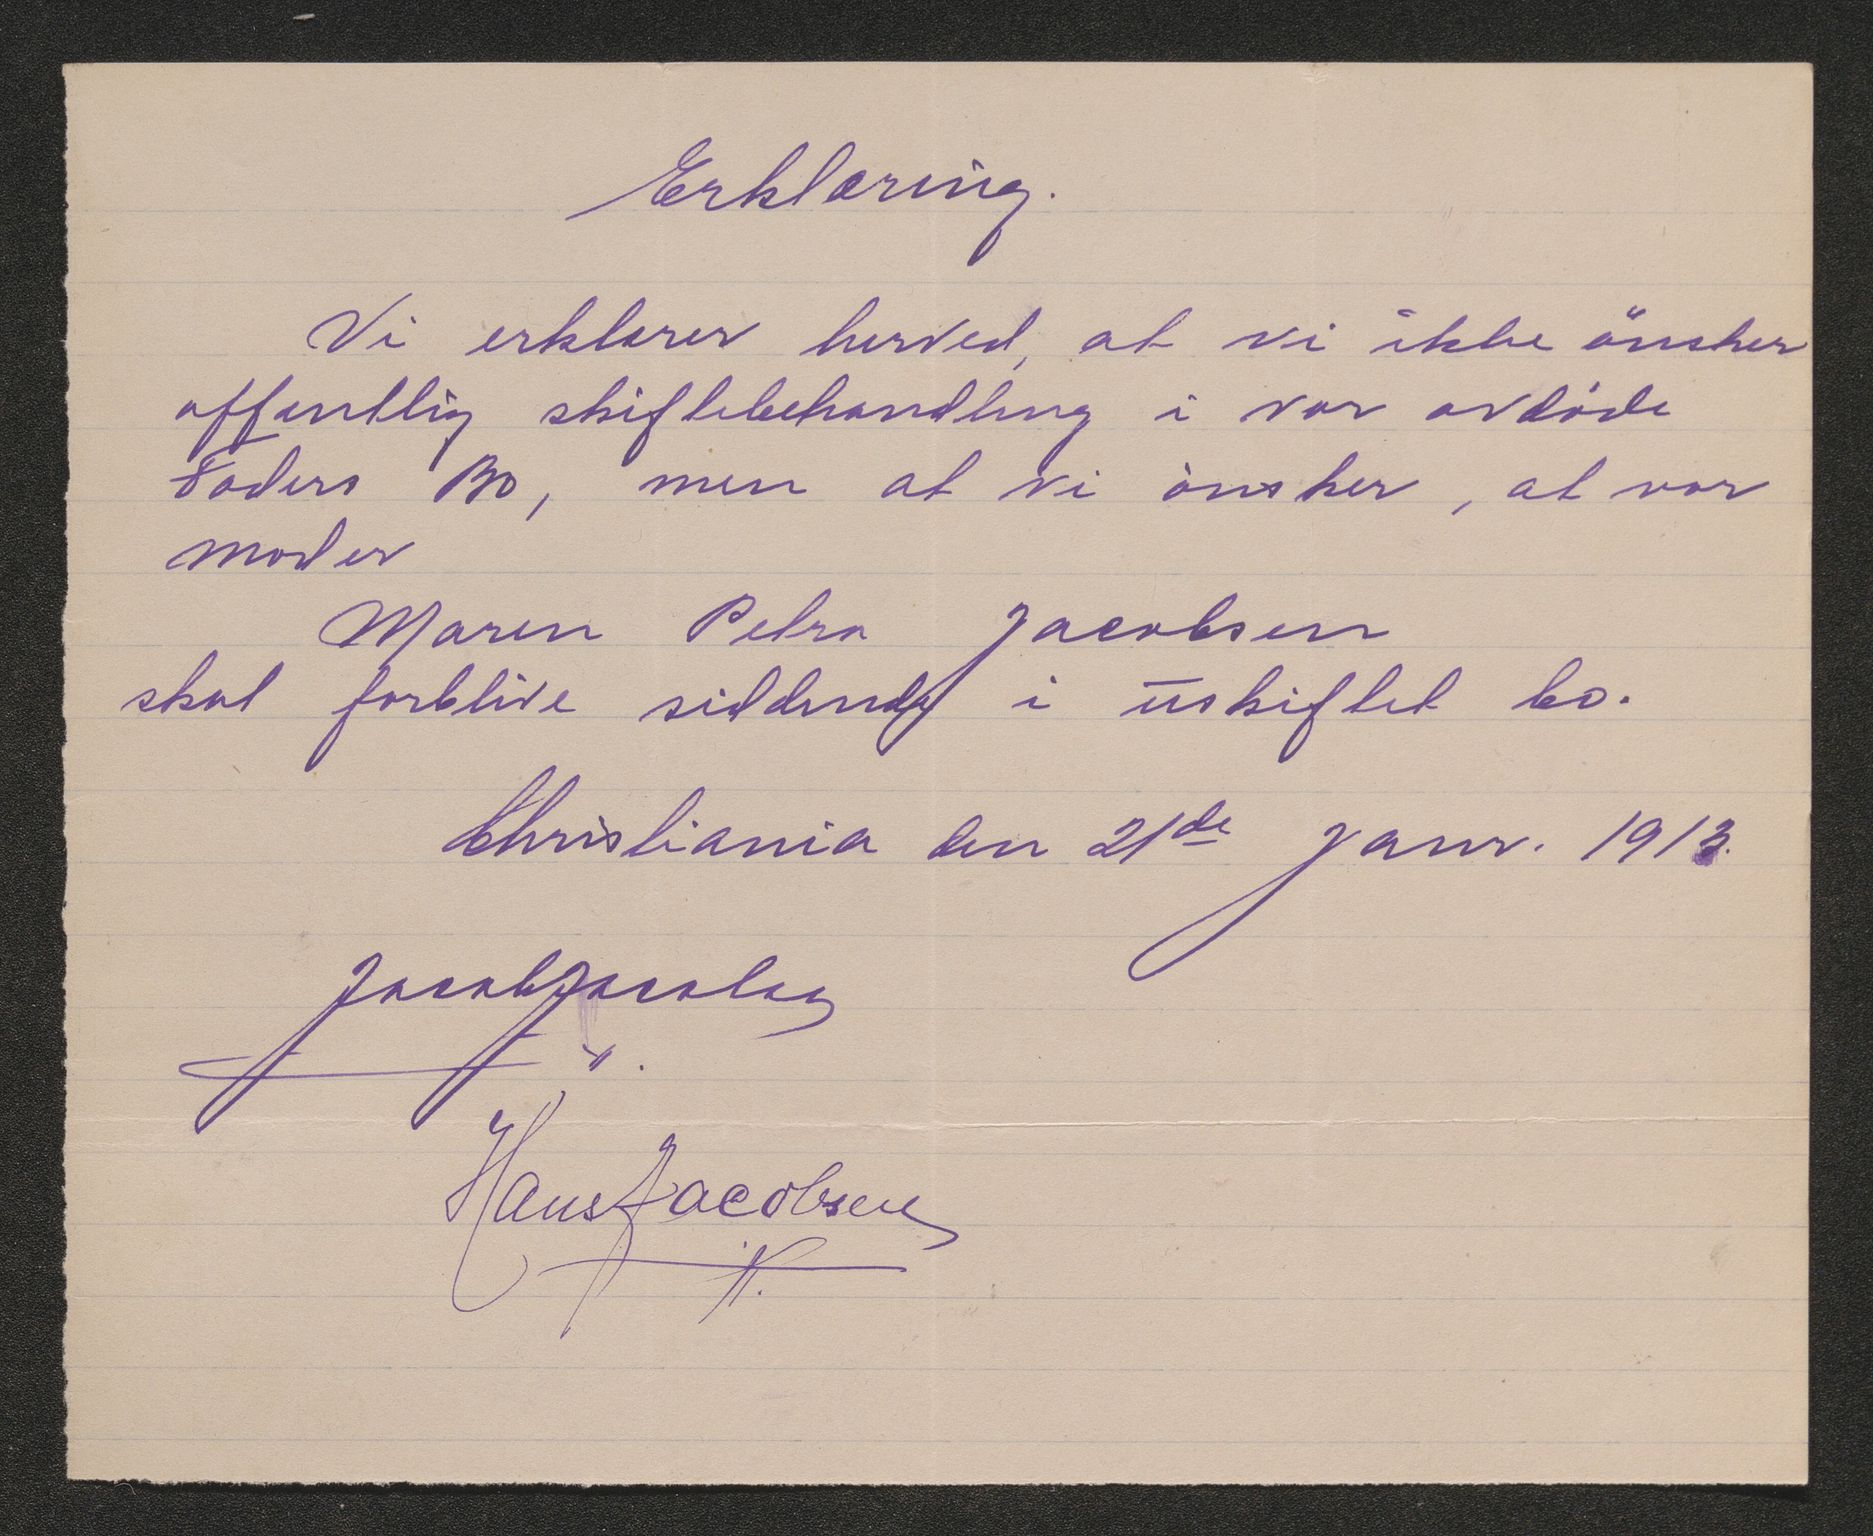 Erklæring.
Vi erklærer herved, at vi ikke önsker
offentlig skiftebehandling i vor avdöde
Faders Bo, men at vi önsker, at vor
moder
Maren Petra Jacobsen
skal forblive siddende i uskiftet bo.
Christiania den 21de Janr. 1913.
Jacob Jacobsen
Hans Jacobsen